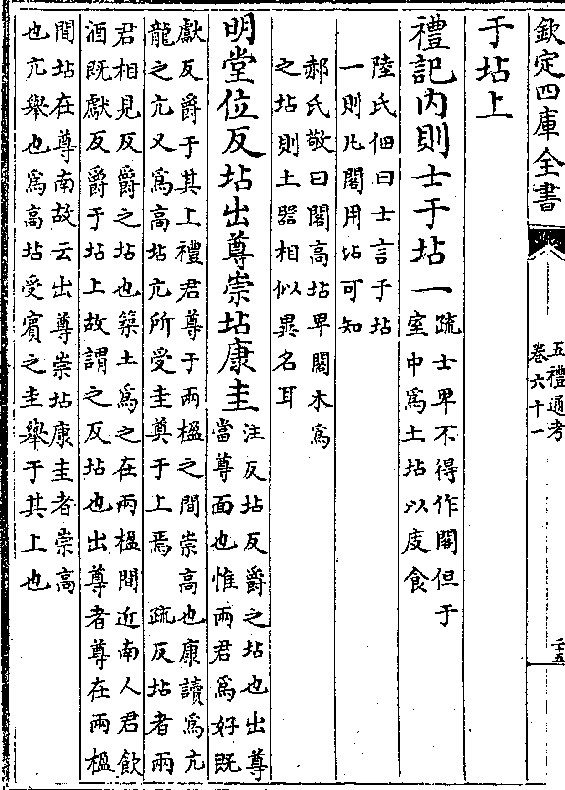 欽定四庫全書
五禮通考
卷六十一
二十五
于坫上
禮記內則士于坫一
疏士卑不得作閣但于
室中爲土坫以庋食
陸氏佃曰士言于坫
一則凡閣用坫可知
郝氏敬曰閣高坫卑閣木爲
之坫則土器相似異名耳
明堂位反坫出尊崇坫康圭
注反坫反爵之坫也出尊
當尊面也惟兩君爲好既
獻反爵于其上禮君尊于兩楹之間崇高也康讀爲亢
龍之亢又爲高坫亢所受圭奠于上焉 疏反坫者兩
君相見反爵之坫也築土爲之在兩楹間近南人君飲
酒既獻反爵于坫上故謂之反坫也出尊者尊在兩楹
間坫在尊南故云出尊崇坫康圭者崇高
也亢舉也爲高坫受賓之圭舉于其上也